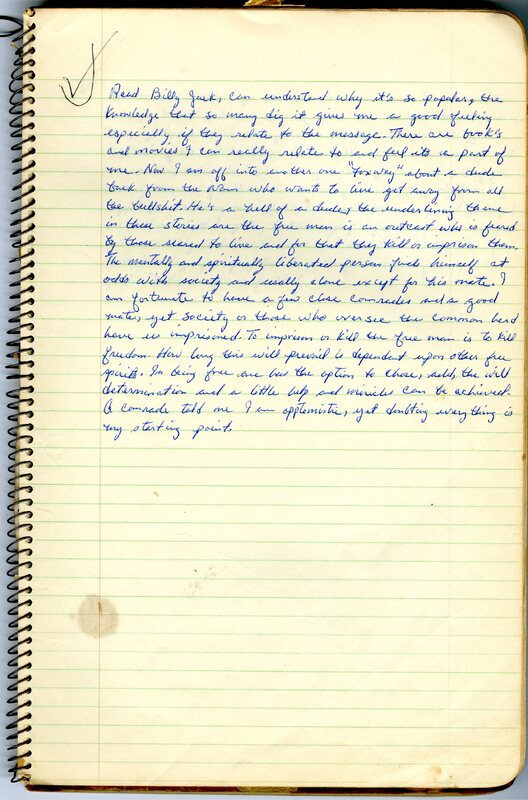 Read Billy Jack, can understand why it's so popular, the
knowledge that so many dig it gives me a good feeling
especially if they relate to the message. There are book's
and movies I can really relate to and feel its a part of
me. Now I am off into another one "Foxway" about a dude
back from the Nam who wants to live get away form all
the bullshit. He's a hell of a dude, the underlining theme
in these stories are the free man is an outcast who is feared
by those scared to live and for that they kill or imprison them.
The mentally and spiritually liberated person finds himself at
odds with society and usally alone except for his mate. I
am fortunate to have a few close comrades and a good
mate, yet society or those who oversee the common herd
have us imprisoned. To imprison or kill the free man is to kill
freedom. How long this will prevail is dependent upon other free
spirits. In being free one has the option to chose, add, the will
determination and a little help and miricles can be achieved.
A comrade told me I am optemistic, yet doubting everything is
my starting point.